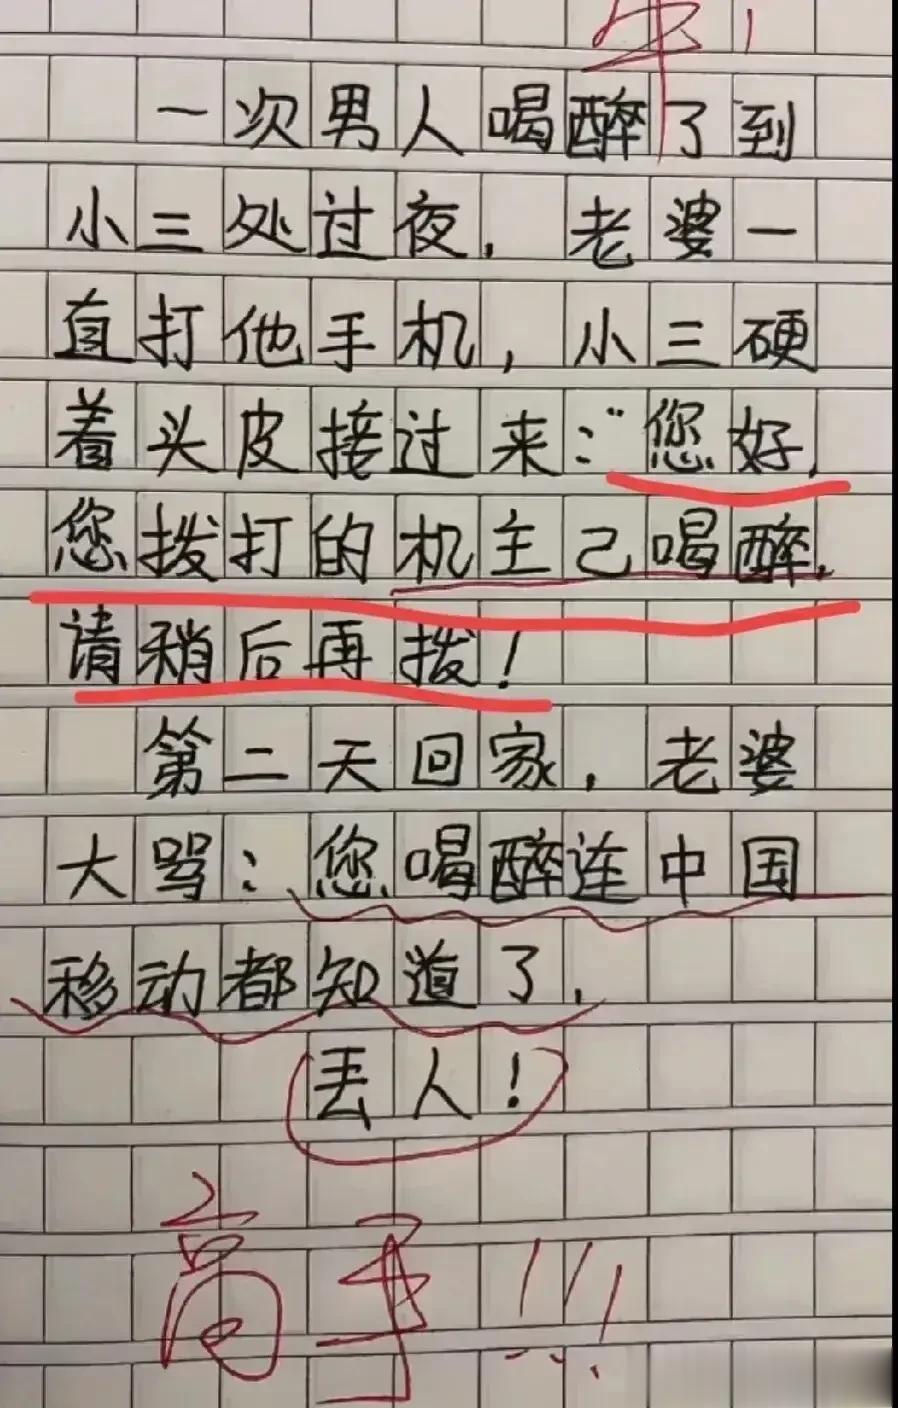 牛!
一次男人喝醉了到
小三处过夜，老婆一
直打他手机，小三硬
着头皮接过来:"您好，
您拨打的机主己喝醉，
请稍后再拨!
第二天回家，老婆
大骂:您喝醉连中国
移动都知道了，
丢人!
高手!!!